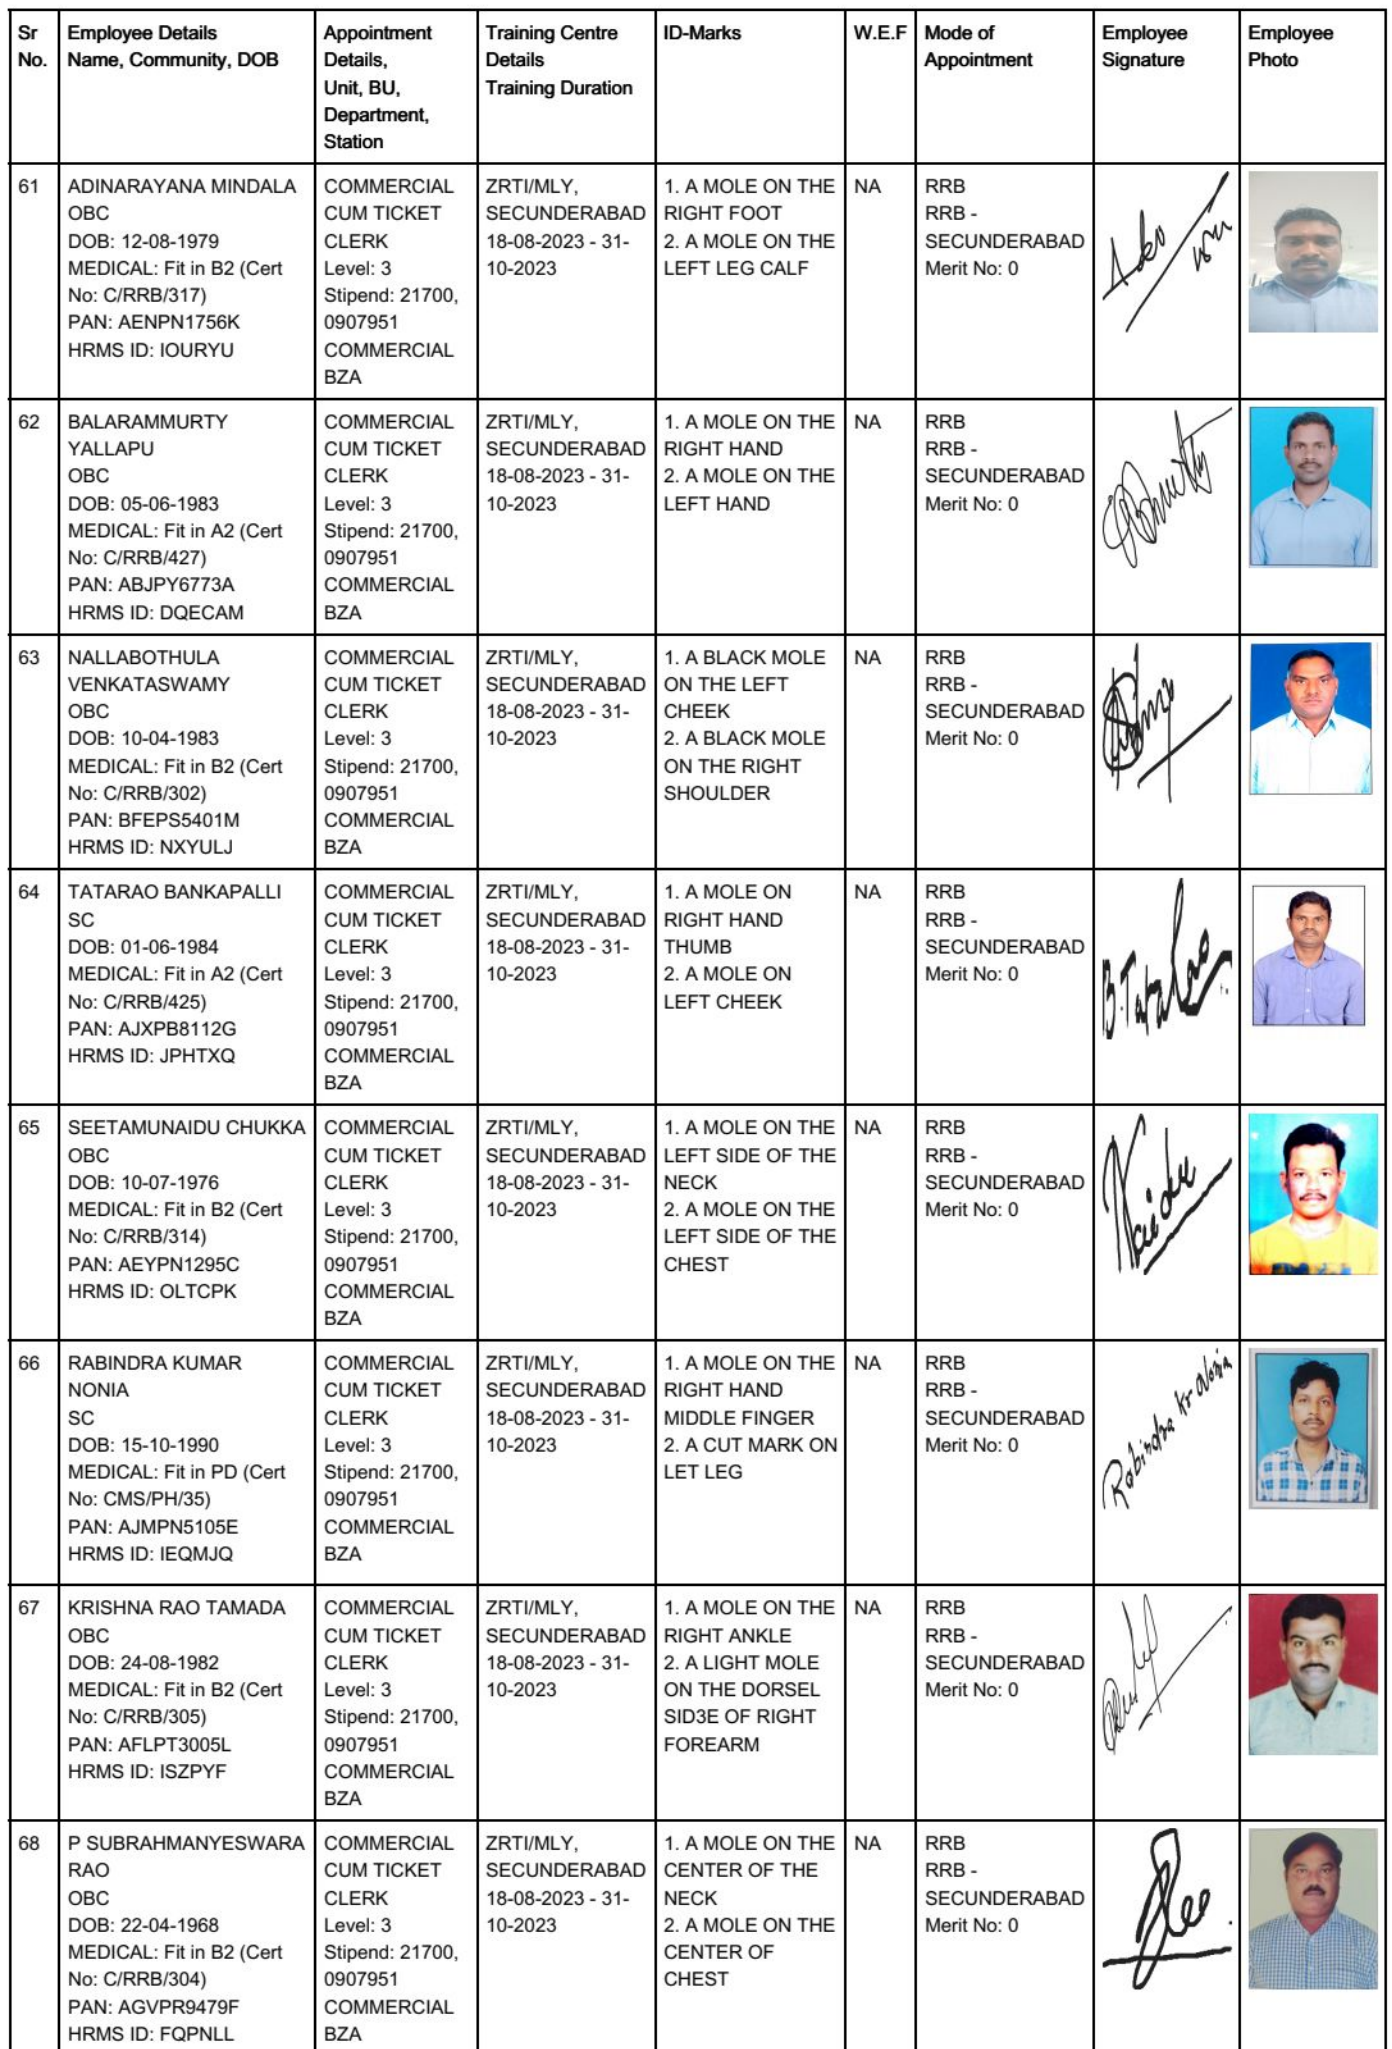 Sr No.
Employee Details
Name, Community, DOB
Appointment
Details,
Unit, BU,
Department,
Station
Training Centre
Details
Training Duration
ID-Marks
W.E.F
Mode of
Appointment
Employee
Signature
Employee
Photo
61
ADINARAYANA MINDALA
OBC
DOB: 12-08-1979
MEDICAL: Fit in B2 (Cert
No: C/RRB/317)
PAN: AENPN1756K
HRMS ID: IOURYU
COMMERCIAL
CUM TICKET
CLERK
Level: 3
Stipend: 21700,
0907951
COMMERCIAL
BZA
ZRTI/MLY,
SECUNDERABAD
18-08-2023 - 31-
10-2023
1. A MOLE ON THE
RIGHT FOOT
2. A MOLE ON THE
LEFT LEG CALF
NA
RRB
RRB -
SECUNDERABAD
Merit No: 0
62
BALARAMMURTY
YALLAPU
OBC
DOB: 05-06-1983
MEDICAL: Fit in A2 (Cert
No: C/RRB/427)
PAN: ABJPY6773A
HRMS ID: DQECAM
COMMERCIAL
CUM TICKET
CLERK
Level: 3
Stipend: 21700,
0907951
COMMERCIAL
BZA
ZRTI/MLY,
SECUNDERABAD
18-08-2023 - 31-
10-2023
1. A MOLE ON THE
RIGHT HAND
2. A MOLE ON THE
LEFT HAND
NA
RRB
RRB -
SECUNDERABAD
Merit No: 0
63
NALLABOTHULA
VENKATASWAMY
OBC
DOB: 10-04-1983
MEDICAL: Fit in B2 (Cert
No: C/RRB/302)
PAN: BFEPS5401M
HRMS ID: NXYULJ
COMMERCIAL
CUM TICKET
CLERK
Level: 3
Stipend: 21700,
0907951
COMMERCIAL
BZA
ZRTI/MLY,
SECUNDERABAD
18-08-2023 - 31-
10-2023
1. A BLACK MOLE
ON THE LEFT
CHEEK
2. A BLACK MOLE
ON THE RIGHT
SHOULDER
NA
RRB
RRB -
SECUNDERABAD
Merit No: 0
64
TATARAO BANKAPALLI
SC
DOB: 01-06-1984
MEDICAL: Fit in A2 (Cert
No: C/RRB/425)
PAN: AJXPB8112G
HRMS ID: JPHTXQ
COMMERCIAL
CUM TICKET
CLERK
Level: 3
Stipend: 21700,
0907951
COMMERCIAL
BZA
ZRTI/MLY,
SECUNDERABAD
18-08-2023 - 31-
10-2023
1. A MOLE ON
RIGHT HAND
THUMB
2. A MOLE ON
LEFT CHEEK
NA
RRB
RRB -
SECUNDERABAD
Merit No: 0
B.Tatarao
65
SEETAMUNAIDU CHUKKA
OBC
DOB: 10-07-1976
MEDICAL: Fit in B2 (Cert
No: C/RRB/314)
PAN: AEYPN1295C
HRMS ID: OLTCPK
COMMERCIAL
CUM TICKET
CLERK
Level: 3
Stipend: 21700,
0907951
COMMERCIAL
BZA
ZRTI/MLY,
SECUNDERABAD
18-08-2023 - 31-
10-2023
1. A MOLE ON THE
LEFT SIDE OF THE
NECK
2. A MOLE ON THE
LEFT SIDE OF THE
CHEST
NA
RRB
RRB -
SECUNDERABAD
Merit No: 0
Naidu
66
RABINDRA KUMAR
NONIA
SC
DOB: 15-10-1990
MEDICAL: Fit in PD (Cert
No: CMS/PH/35)
PAN: AJMPN5105E
HRMS ID: IEQMJQ
COMMERCIAL
CUM TICKET
CLERK
Level: 3
Stipend: 21700,
0907951
COMMERCIAL
BZA
ZRTI/MLY,
SECUNDERABAD
18-08-2023 - 31-
10-2023
1. A MOLE ON THE
RIGHT HAND
MIDDLE FINGER
2. A CUT MARK ON
LET LEG
NA
RRB
RRB -
SECUNDERABAD
Merit No: 0
Rabindra Kr Nonia
67
KRISHNA RAO TAMADA
OBC
DOB: 24-08-1982
MEDICAL: Fit in B2 (Cert
No: C/RRB/305)
PAN: AFLPT3005L
HRMS ID: ISZPYF
COMMERCIAL
CUM TICKET
CLERK
Level: 3
Stipend: 21700,
0907951
COMMERCIAL
BZA
ZRTI/MLY,
SECUNDERABAD
18-08-2023 - 31-
10-2023
1. A MOLE ON THE
RIGHT ANKLE
2. A LIGHT MOLE
ON THE DORSEL
SID3E OF RIGHT
FOREARM
NA
RRB
RRB -
SECUNDERABAD
Merit No: 0
68
P SUBRAHMANYESWARA
RAO
OBC
DOB: 22-04-1968
MEDICAL: Fit in B2 (Cert
No: C/RRB/304)
PAN: AGVPR9479F
HRMS ID: FQPNLL
COMMERCIAL
CUM TICKET
CLERK
Level: 3
Stipend: 21700,
0907951
COMMERCIAL
BZA
ZRTI/MLY,
SECUNDERABAD
18-08-2023 - 31-
10-2023
1. A MOLE ON THE
CENTER OF THE
NECK
2. A MOLE ON THE
CENTER OF
CHEST
NA
RRB
RRB -
SECUNDERABAD
Merit No: 0